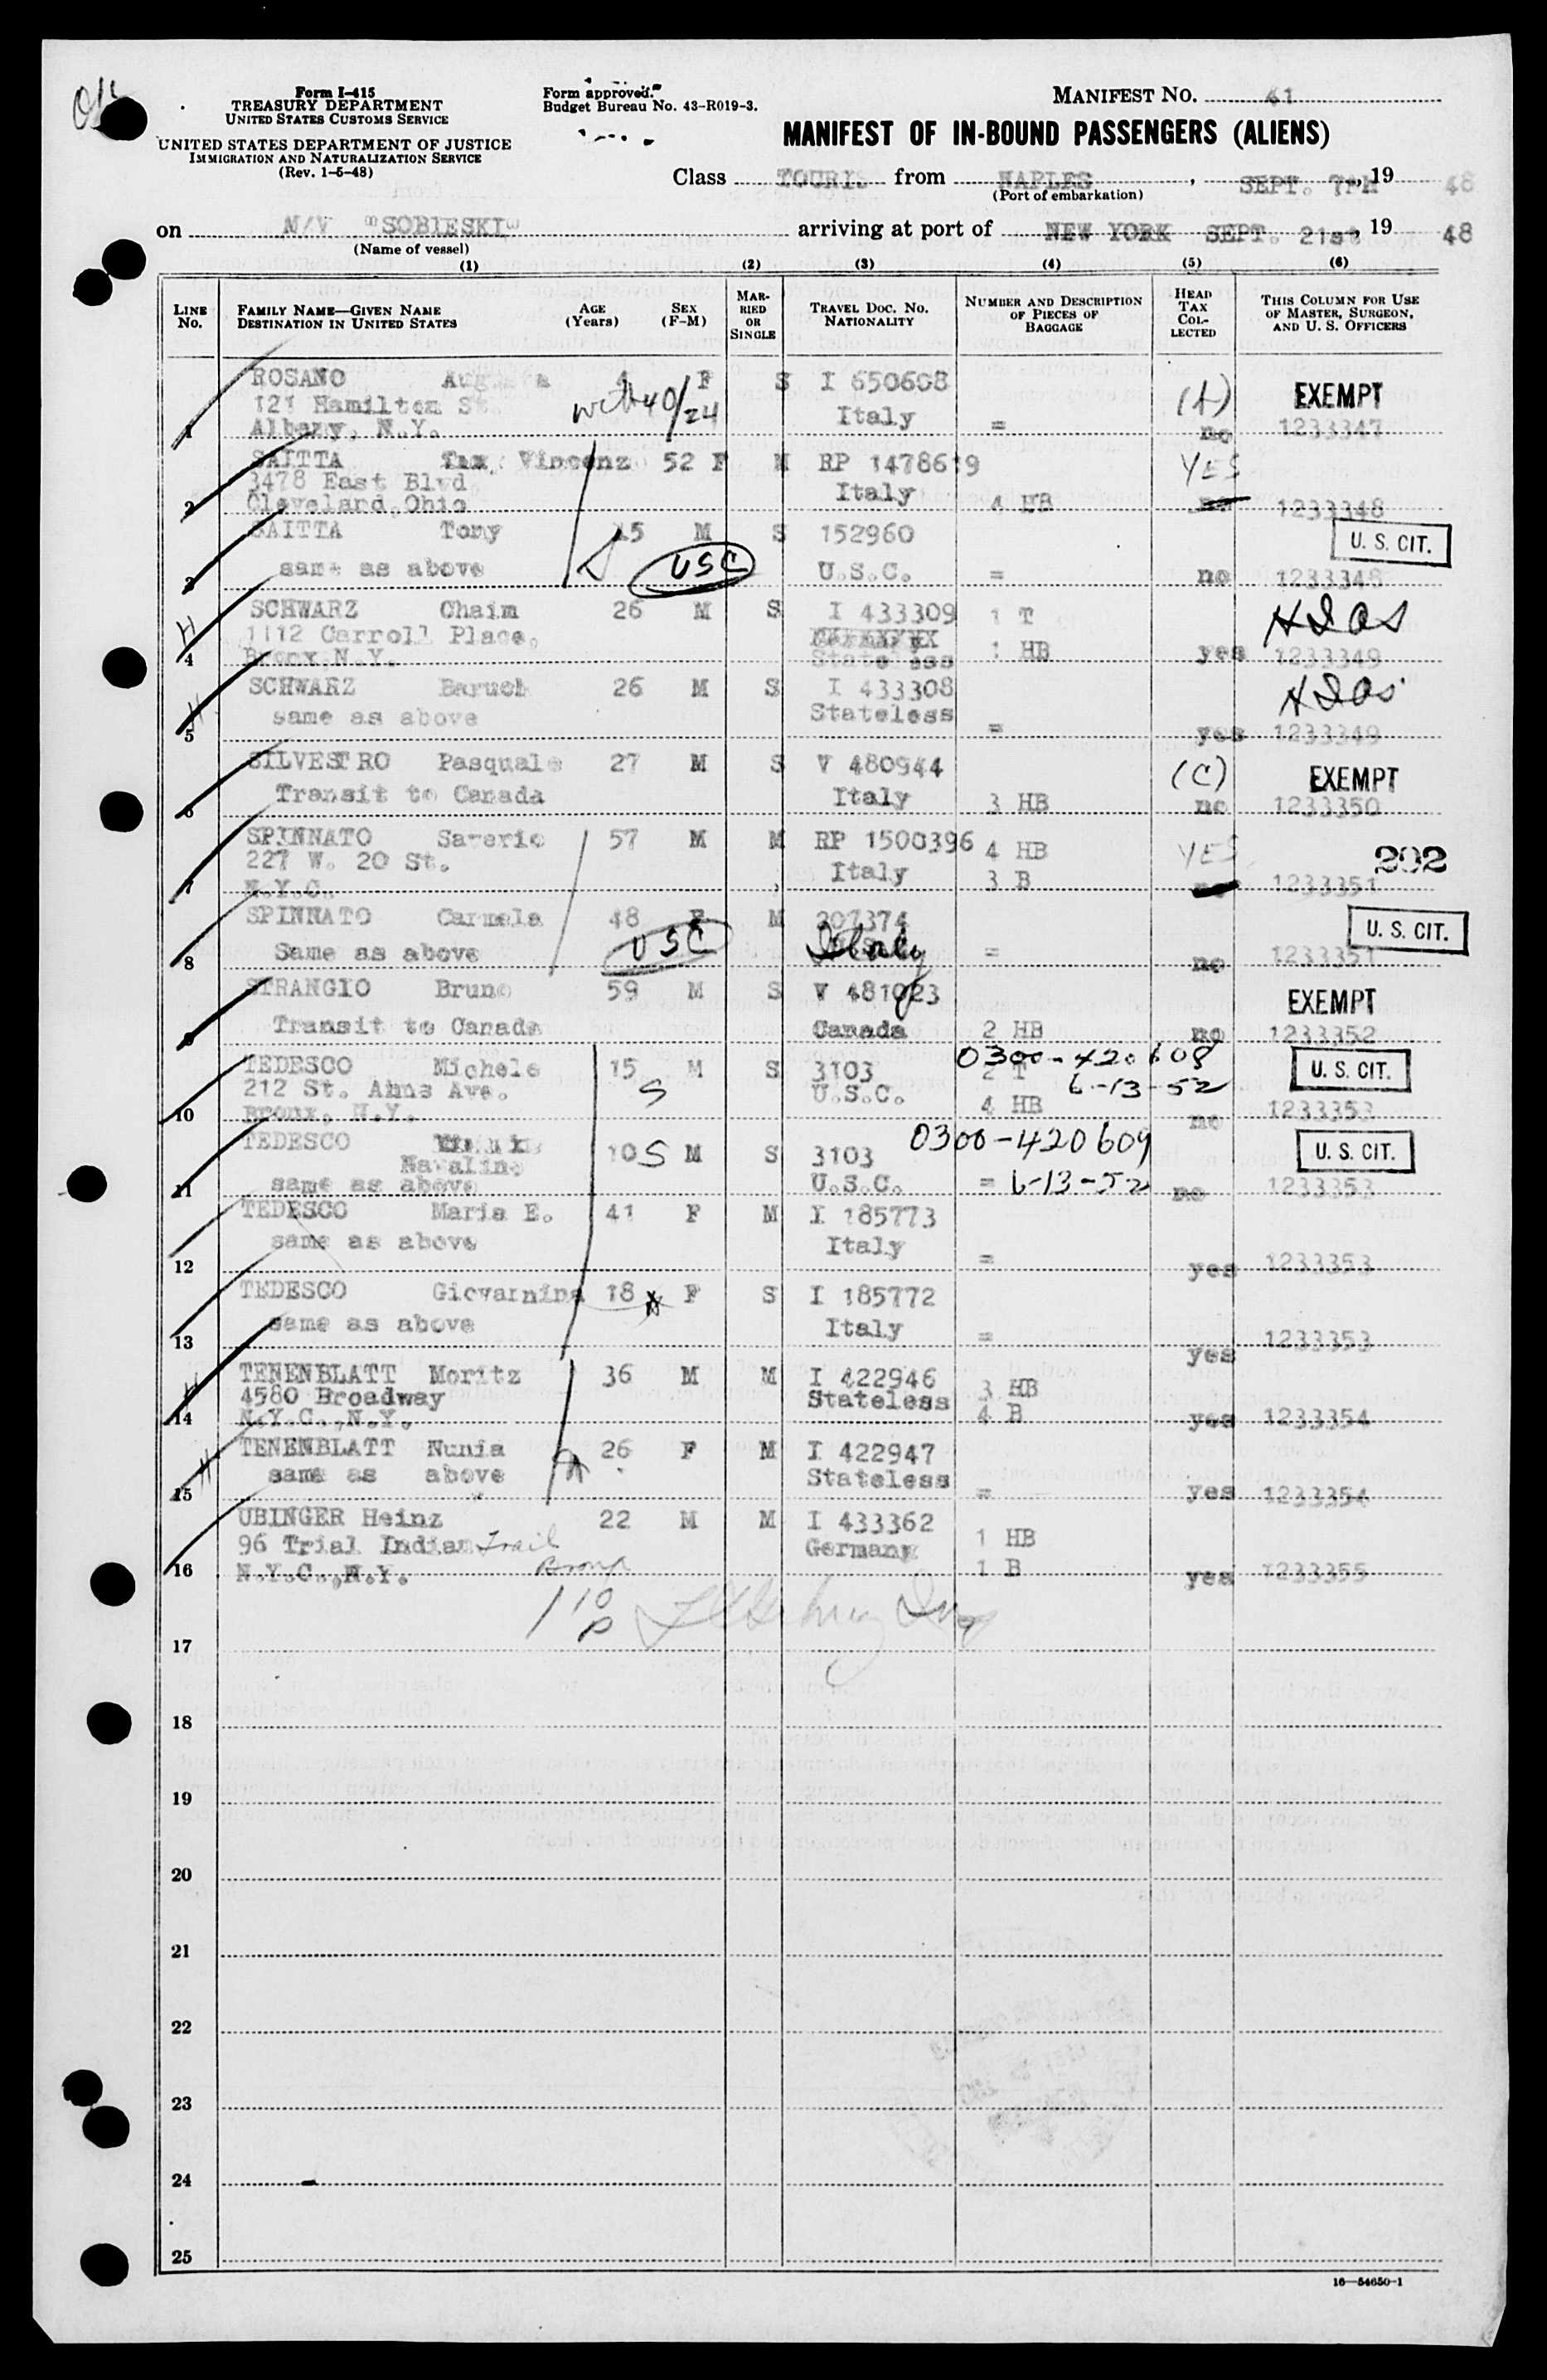 Form I-415
TREASURY DEPARTMENT
UNITED STATES CUSTOMS SERVICE
UNITED STATES DEPARTMENT OF JUSTICE
IMMIGRATION AND NATURALIZATION SERVICE
(Rev. 1-5-48)
Form approved.
Budget Bureau No. 43-R019-3.
MANIFEST NO. 61
MANIFEST OF IN-BOUND PASSENGERS (ALIENS)
Class TOURIS from NAPLES, SEPT. 7TH, 19 48
(Port of embarkation)
on M/V "SOBIESKI" arriving at port of NEW YORK SEPT. 21st, 19 48
(Name of vessel)
(1) (2) (3) (4) (5) (6)
LINE NO.
FAMILY NAME—GIVEN NAME DESTINATION IN UNITED STATES
AGE (Years)
SEX (F-M)
MARRIED OR SINGLE
TRAVEL DOC. NO. NATIONALITY
NUMBER AND DESCRIPTION OF PIECES OF BAGGAGE
HEAD TAX COLLECTED
THIS COLUMN FOR USE OF MASTER, SURGEON, AND U. S. OFFICERS
ROSANO F S I 650608 (A) EXEMPT
121 Hamilton St. with 40/24 Italy
1 Albany, N.Y. = no 1233347
SAITTA Vincenz 52 F M RP 1478619 YES
3478 East Blvd Italy
2 Cleveland, Ohio 4 HB no 1233348
SAITTA Tony 15 M S 152960 U. S. CIT.
3 same as above USC U.S.C. = no 1233348
SCHWARZ Chaim 26 M S I 433309 1 T HIAS
1112 Carroll Place,
4 Bronx N.Y. Stateless 1 HB yes 1233349
SCHWARZ Baruch 26 M S I 433308 HIAS
same as above Stateless
5 = yes 1233349
SILVESTRO Pasquale 27 M S V 480944 (C) EXEMPT
6 Transit to Canada Italy 3 HB no 1233350
SPINNATO Saverio 57 M M RP 1500396 4 HB YES 292
227 W. 20 St. Italy 3 B
7 N.Y.C. no 1233351
SPINNATO Carmela 48 F M 207374 U. S. CIT.
8 Same as above USC Italy = no 1233351
STRANGIO Bruno 59 M S V 481023 EXEMPT
9 Transit to Canada Canada 2 HB no 1233352
TEDESCO Michele 15 M S 3103 2 T 0300-420608 U. S. CIT.
212 St. Anns Ave. S U.S.C. 6-13-52
10 Bronx, N.Y. 4 HB no 1233353
TEDESCO 10 S M S 3103 0300-420609 U. S. CIT.
Navalino
11 same as above U.S.C. = 6-13-52 no 1233353
TEDESCO Maria E. 41 F M I 185773
same as above Italy
12 = yes 1233353
TEDESCO Giovannina 18 F S I 185772
same as above Italy
13 = yes 1233353
TENENBLATT Moritz 36 M M I 422946 3 HB
4580 Broadway Stateless
14 N.Y.C., N.Y. 4 B yes 1233354
TENENBLATT Nunia 26 F M I 422947
same as above Stateless
15 = yes 1233354
UBINGER Heinz 22 M M I 433362 1 HB
96 Trial Indian Trail Germany
16 N.Y.C., N.Y. Bronx 1 B yes 1233355
17
18
19
20
21
22
23
24
25
16—54650-1